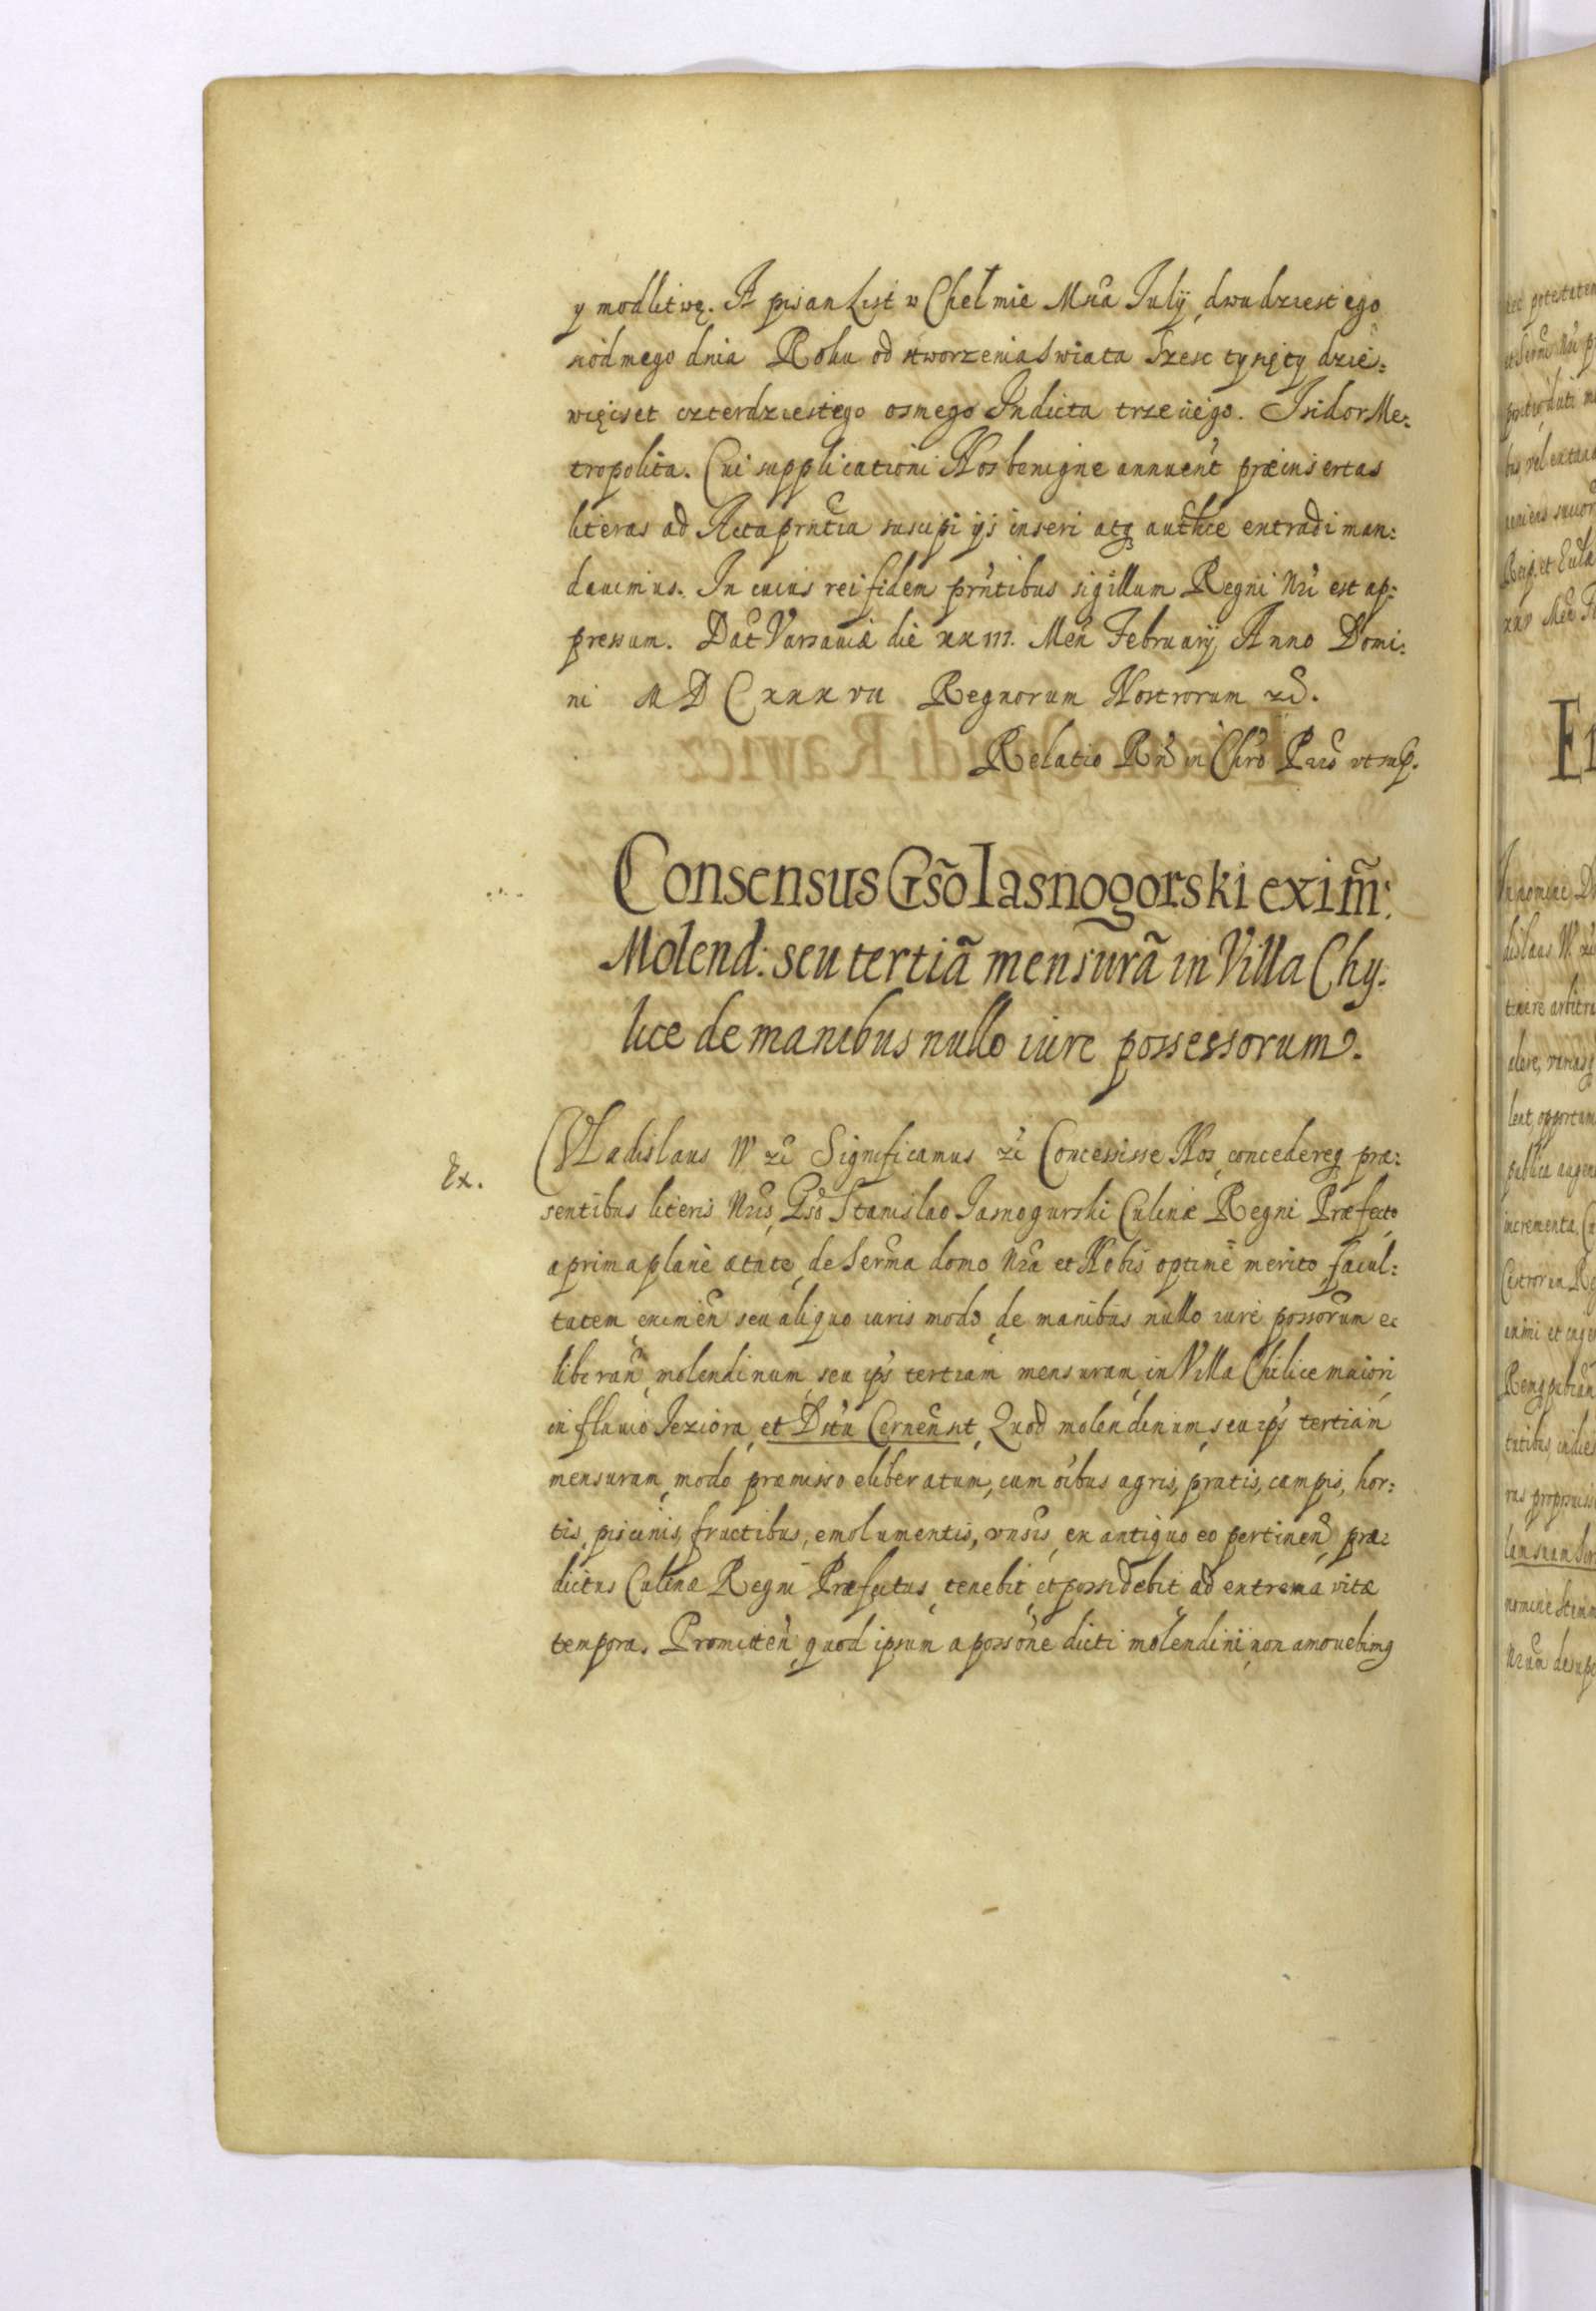 y modlitwę. A pisan List w Chełmie Mńca July, dwudziestego
siodmego dnia Roku od stworzenia Swiata Szesc tysięcy dzie:
więcset czterdziestego osmego Indicta trzeciego. Isidor Me:
tropolita. Cui supplicationi Nos benigne annuent præinsertas
literas ad Acta prntia suscipi ijs inseri atq authce extradi man:
dauimus. In cuius rei fidem prntibus sigillum Regni Nri est ap:
pressum. Dat Varsauiæ die xxiii. Men February Anno Domi:
ni M D C xxxvii Regnorum Nostrorum etc.
Relatio Rñ in Chro Pris vt sup.
Consensus Gsõ Iasnogorski exim̃:
Molend: seu tertiã mensurã in Villa Chy:
lice de manibus nullo iure possessorum.
Ex.
Vladislaus IV etc Significamus etc Concessisse Nos, concedereq præ:
sentibus literis Nris, Gso Stanislao Jasnogurski Culinæ Regni Præfecto
a prima plane ætate, de Serma domo Nra et Nobis optime merito, facul:
tatem, eximen seu aliquo iuris modo, de manibus nullo iure possorum e:
liberan, molendinum, seu ips tertiam mensuram, in Villa Chilice maiori
in fluuio Jeziora, et Ditu Cernen sit, Quod molendinum, seu ips tertiam
mensuram, modo præmisso eliberatum, cum oibus agris, pratis, campis, hor:
tis, piscinis, fructibus, emolumentis, vnsis, ex antiquo eo pertinen, præ:
dictus Culinæ Regni Præfectus, tenebit, et possidebit ad extrema vitæ
tempora. Promitten, quod ipsum a possone dicti molendini, non amouebimq